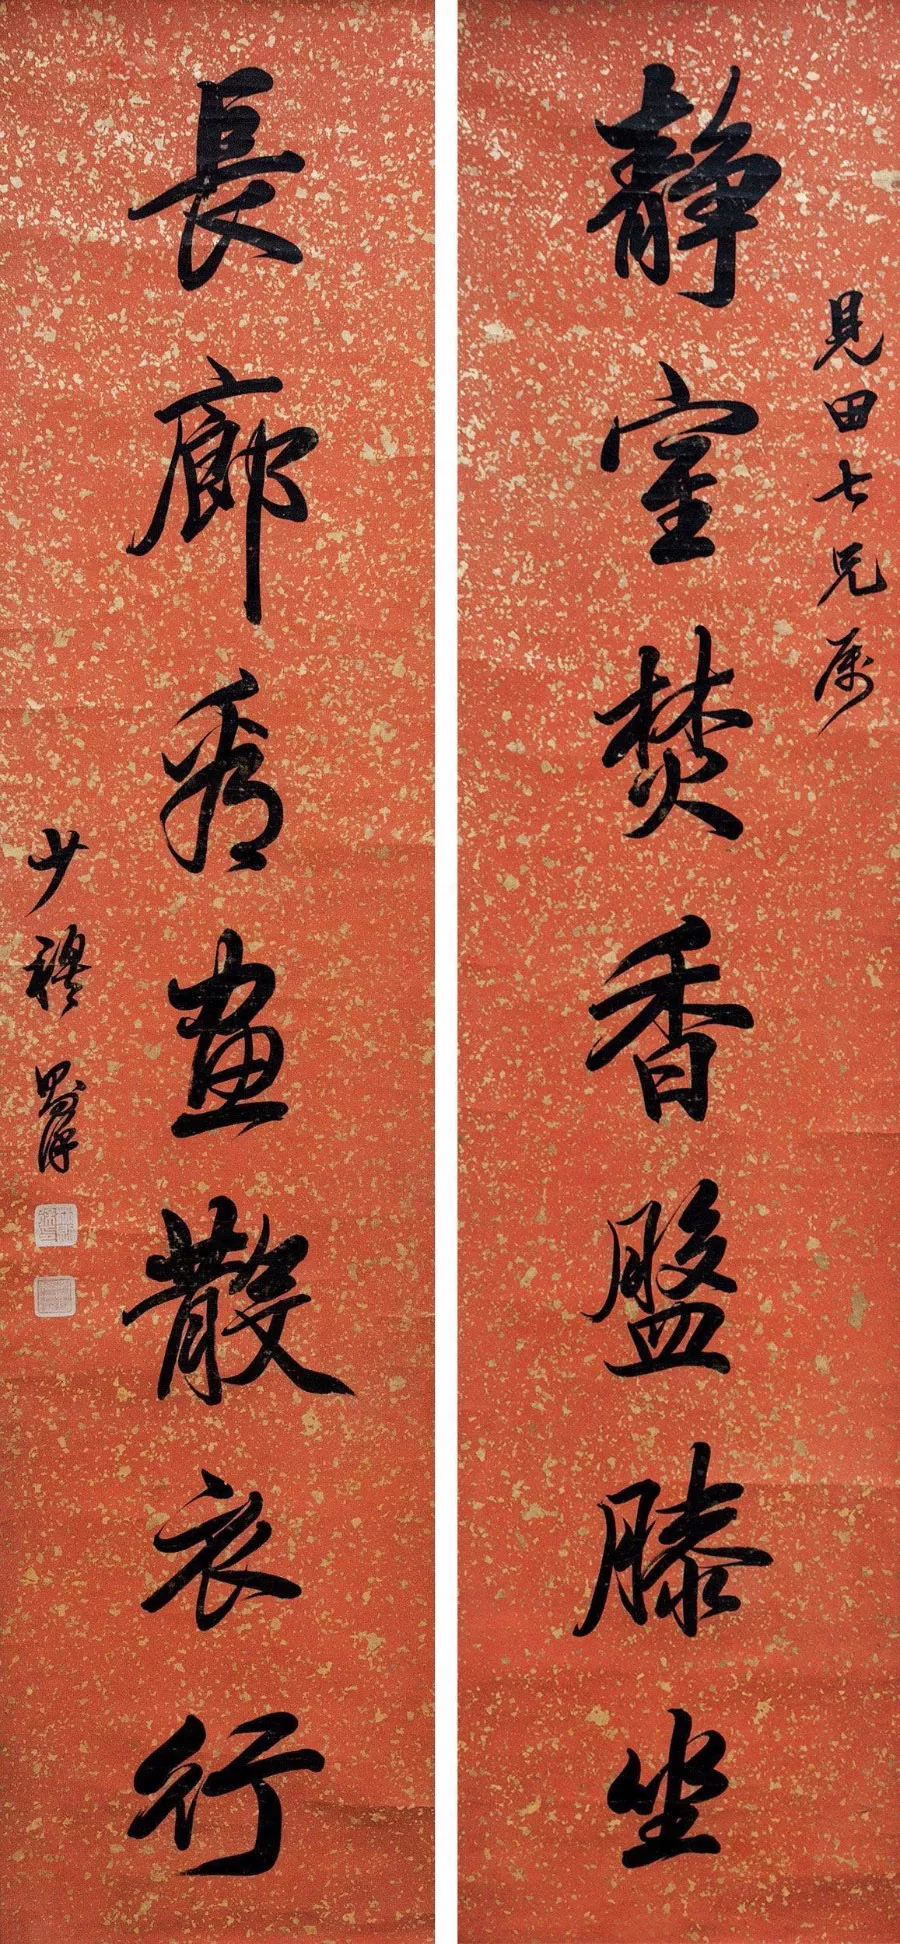 見田七兄属
静室焚香盤膝坐
長廊看畫散衣行
少穆